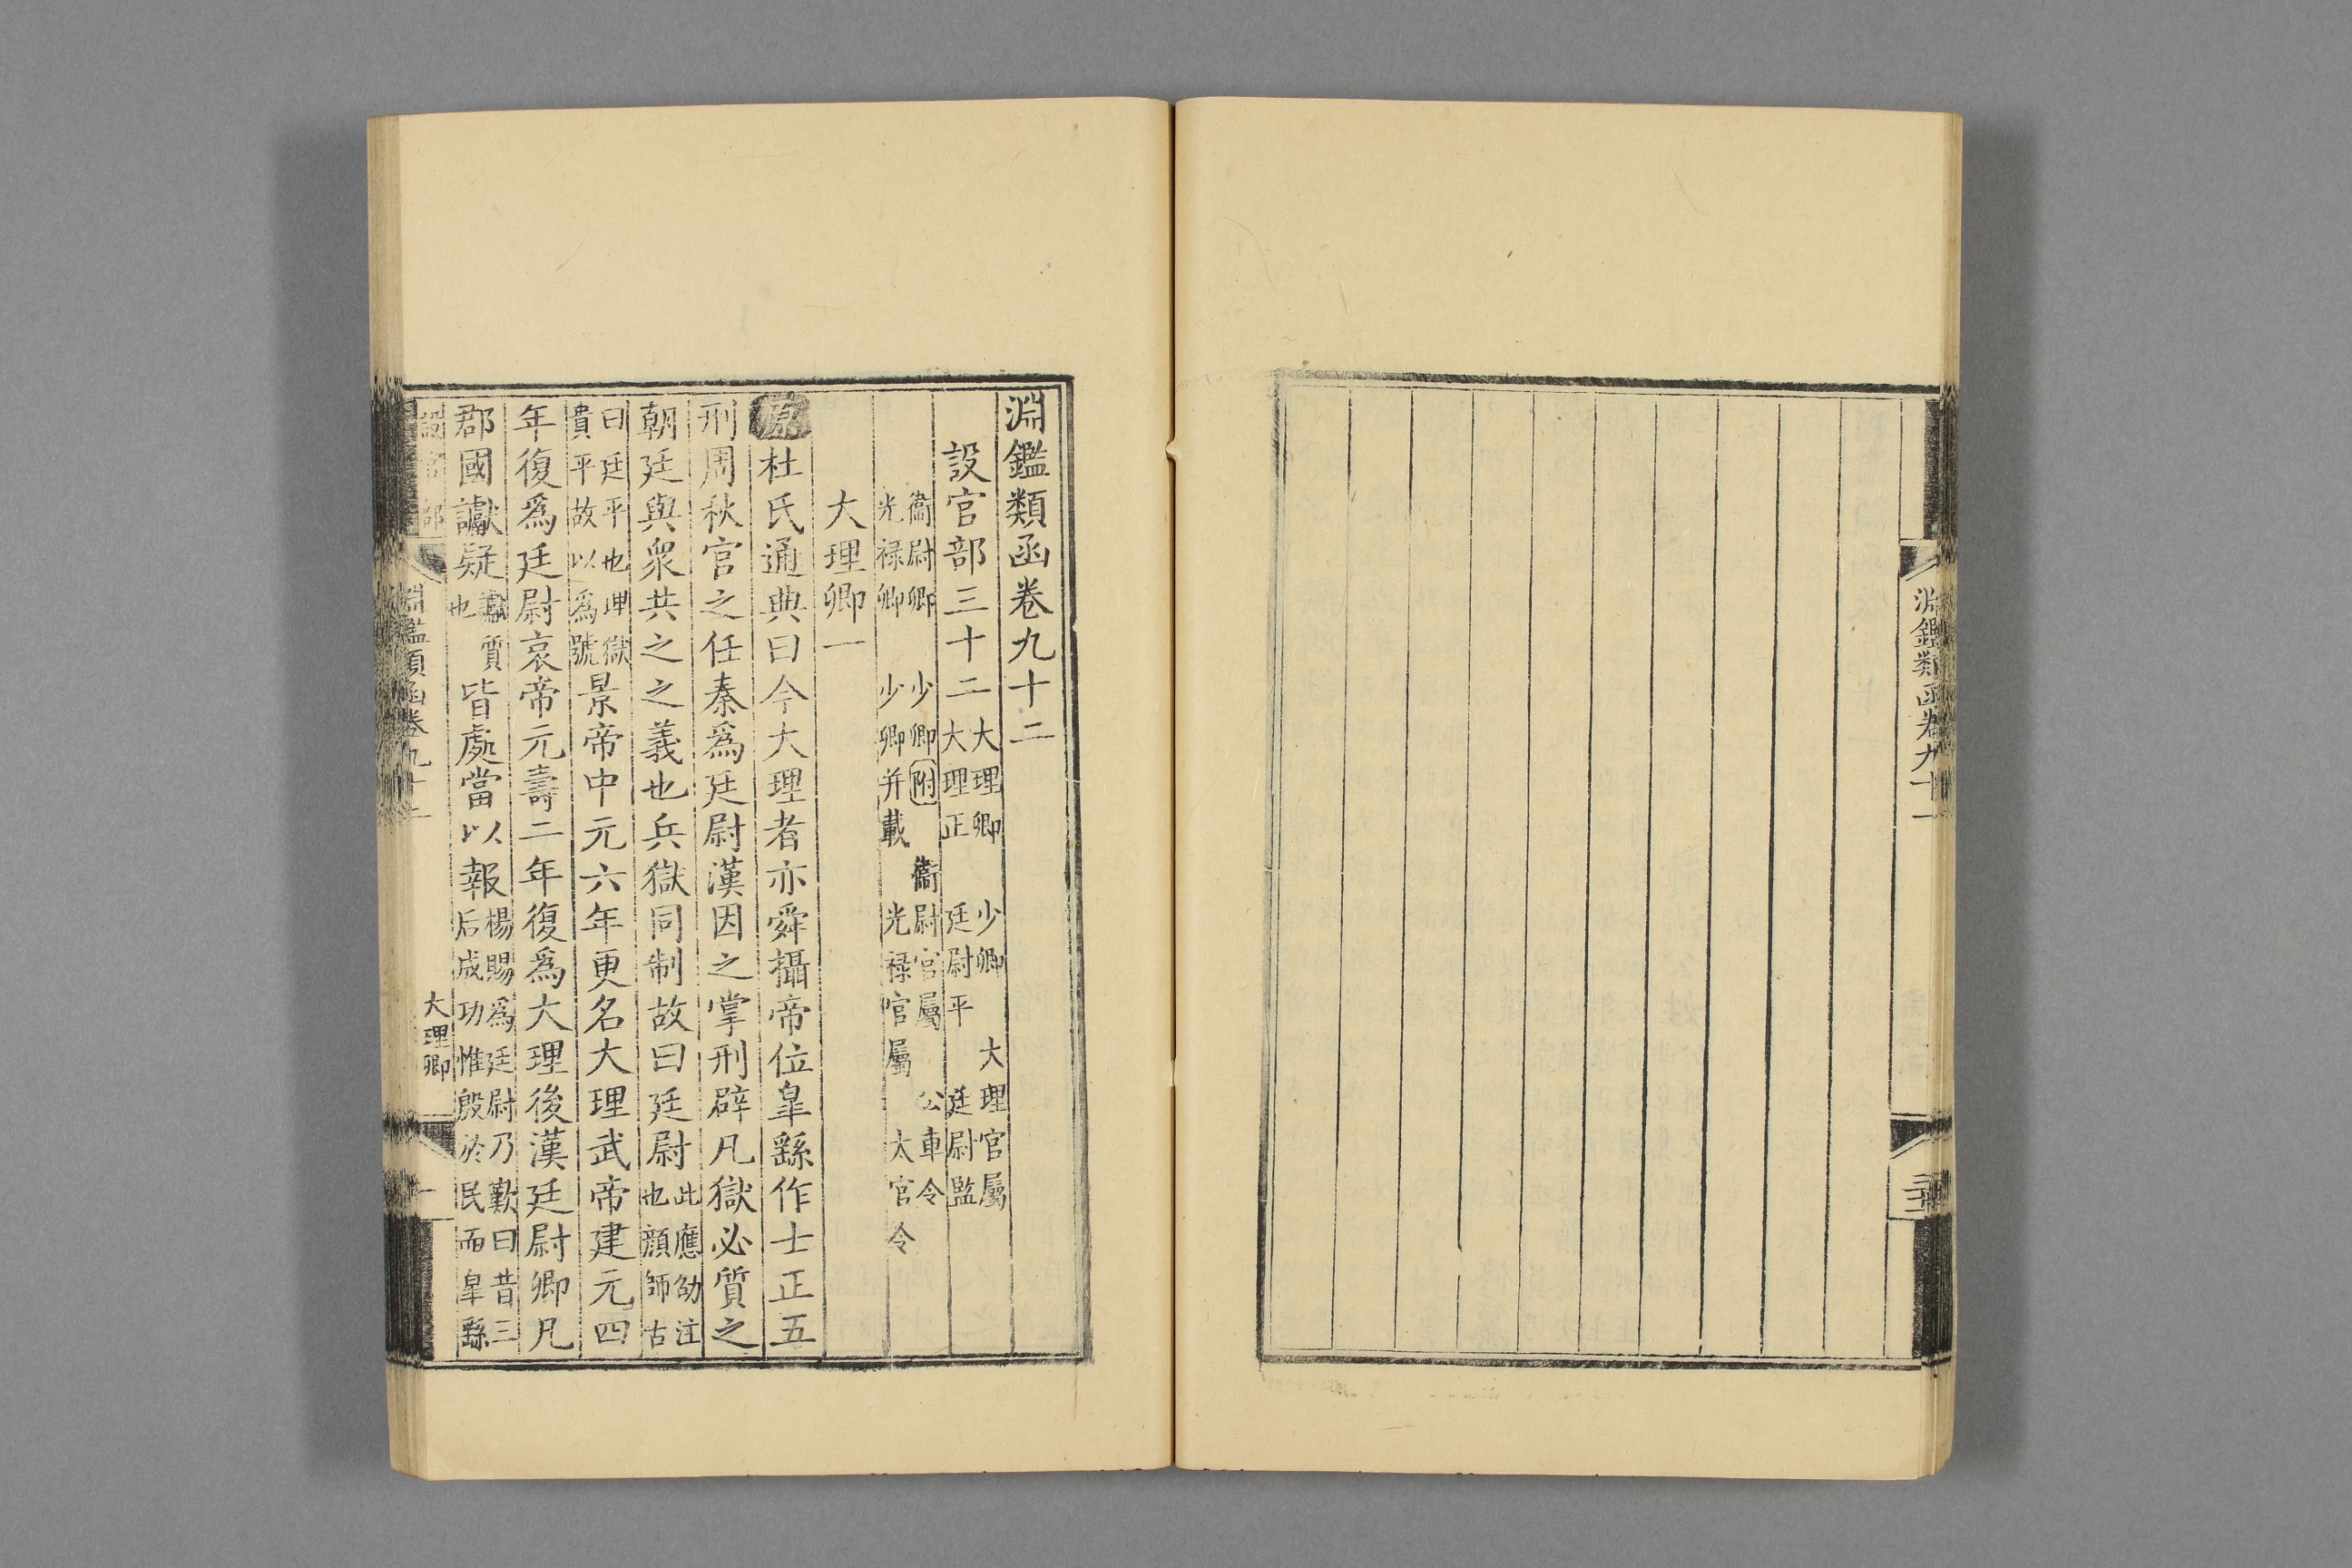 淵鑑類函卷九十一
三十二
淵鑑類函卷九十二
設官部三十二大理卿 少卿 大理官屬
大理正 廷尉平 廷尉監
衞尉卿 少卿附 衞尉官屬 公車令
光祿卿 少卿并載 光祿官屬 太官令
大理卿一
原杜氏通典曰今大理者亦舜攝帝位臯繇作士正五
刑周秋官之任秦爲廷尉漢因之掌刑辟凡獄必質之
朝廷與衆共之之義也兵獄同制故曰廷尉此應劭注
也顔師古
曰廷平也理獄
貴平故以爲號景帝中元六年更名大理武帝建元四
年復爲廷尉哀帝元壽二年復爲大理後漢廷尉卿凡
郡國讞疑讞質
也皆處當以報楊賜爲廷尉乃歎曰昔三
后成功惟殷於民而臯繇
設官部
淵鑑類函卷九十二
大理卿
一